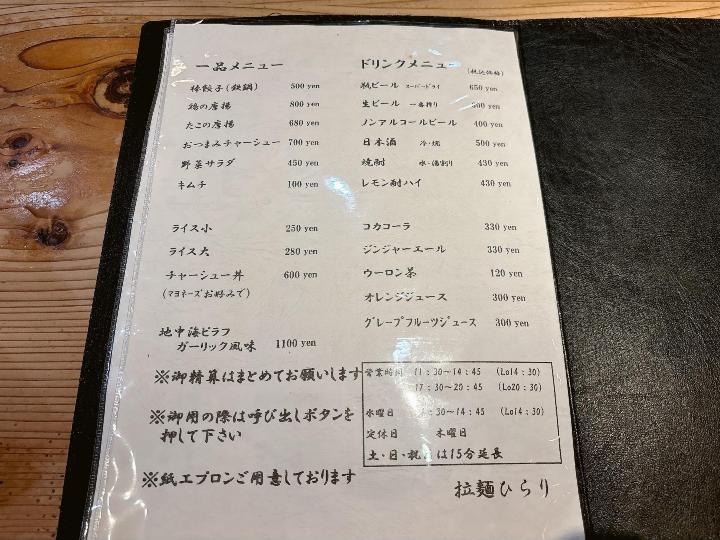 一品メニュー
棒餃子(鉄鍋) 500 yen
鶏の唐揚 800 yen
たこの唐揚 680 yen
おつまみチャーシュー 700 yen
野菜サラダ 450 yen
キムチ 100 yen
ライス小 250 yen
ライス大 280 yen
チャーシュー丼 600 yen
(マヨネーズお好みで)
地中海ピラフ
ガーリック風味 1100 yen
※御精算はまとめてお願いします
※御用の際は呼び出しボタンを
押して下さい
※紙エプロンご用意しております
ドリンクメニュー (税込価格)
瓶ビール スーパードライ 650 yen
生ビール 一番搾り yen
ノンアルコールビール 400 yen
日本酒 冷・燗 500 yen
焼酎 水・湯割り 430 yen
レモン酎ハイ 430 yen
コカコーラ 330 yen
ジンジャーエール 330 yen
ウーロン茶 120 yen
オレンジジュース 300 yen
グレープフルーツジュース 300 yen
営業時間 11:30～14:45 (Lo14:30)
17:30～20:45 (Lo20:30)
水曜日 :30～14:45 (Lo14:30)
定休日 木曜日
土・日・祝 は15分延長
拉麺ひらり